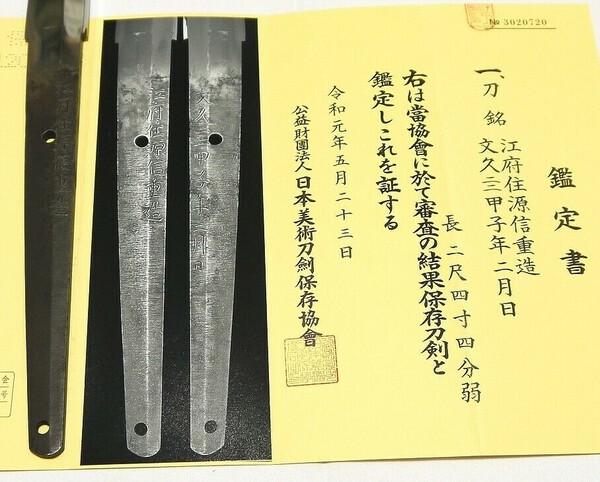 № 3020720
鑑定書
一、刀 銘 江府住源信重造
文久三甲子年二月日
長 二尺四寸四分弱
右は當協會に於て審査の結果保存刀剣と
鑑定しこれを証する
令和元年五月二十三日
公益財團法人日本美術刀劍保存協會
江府住源信重造
会
号